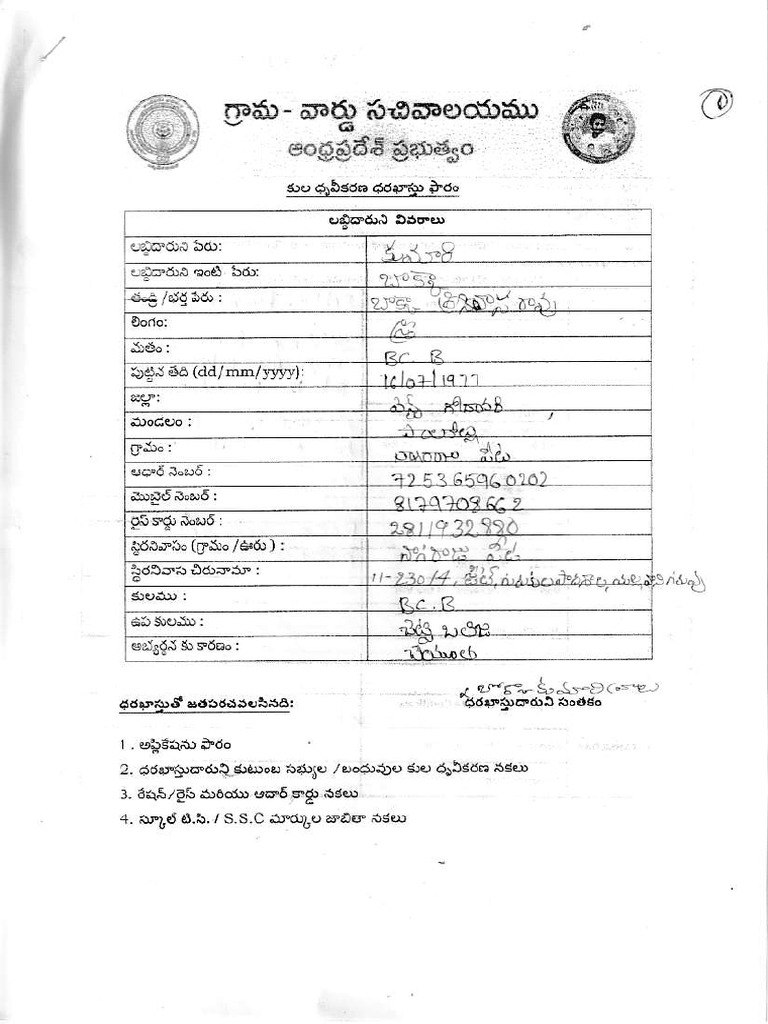 గ్రామ - వార్డు సచివాలయము
ఆంధ్రప్రదేశ్ ప్రభుత్వం
కుల ధృవీకరణ ధరఖాస్తు ఫారం
లబ్దిదారుని వివరాలు
లబ్దిదారుని పేరు: కుమారి
లబ్దిదారుని ఇంటి పేరు: బొక్కా
తండ్రి /భర్త పేరు : బొక్కా శ్రీనివాస రావు
లింగం: స్త్రీ
మతం : BC. B
పుట్టిన తేది (dd/mm/yyyy): 16/07/1977
జిల్లా: వెస్ట్ గోదావరి
మండలం :
గ్రామం : పేట
ఆధార్ నెంబర్ : 725365960202
మొబైల్ నెంబర్ : 8179708662
రైస్ కార్డు నెంబర్ : 2811932880
స్థిరనివాసం (గ్రామం /ఊరు ) : నాగరాజు పేట
స్థిరనివాస చిరునామా : 11-230/4,
కులము : BC. B
ఉప కులము : శెట్టి బలిజ
అభ్యర్థన కు కారణం : చేయూత
ధరఖాస్తుతో జతపరచవలసినది:
ధరఖాస్తుదారుని సంతకం
1 . అప్లికేషను ఫారం
2. ధరఖాస్తుదారుని కుటుంబ సభ్యుల /బంధువుల కుల ధృవీకరణ నకలు
3. రేషన్/రైస్ మరియు ఆదార్ కార్డు నకలు
4. స్కూల్ టి.సి. / S.S.C మార్కుల జాబితా నకలు